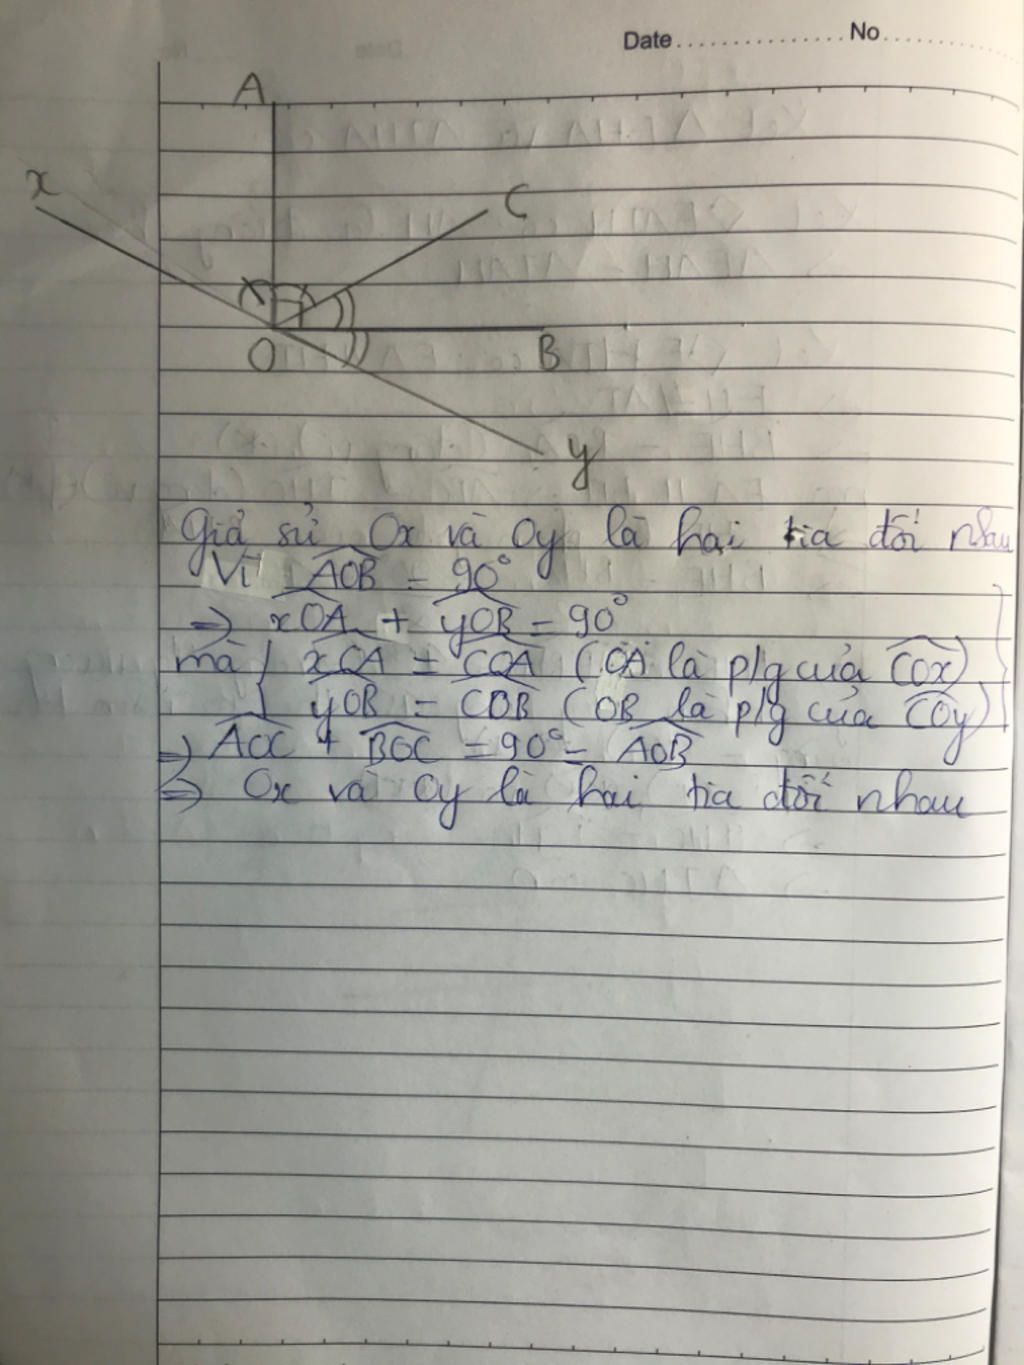 Date................No..............
A
x
C
O
B
y
Giả sử Ox và Oy là hai tia đối nhau
Vì AOB = 90°
=> xOA + yOB = 90°
mà { xOA = COA (OA là p/g của COx)
yOB = COB (OB là p/g của COy)
=> AOC + BOC = 90° = AOB
=> Ox và Oy là hai tia đối nhau